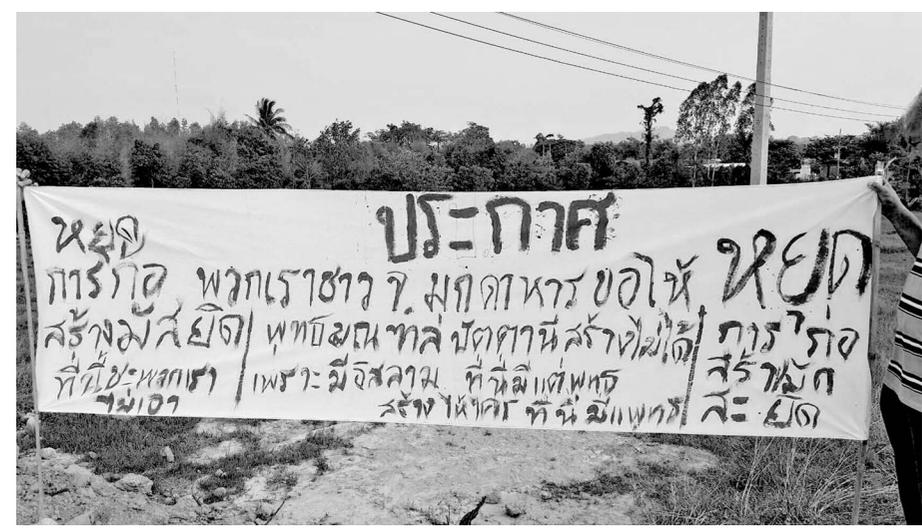 ประกาศ
หยุด
การก่อ
สร้างมัสยิด
ที่นี้ พวกเรา
ไม่เอา
พวกเราชาว จ. มุกดาหาร ขอให้
พุทธมณฑล ปัตตานีสร้างไม่ได้
เพราะมีอิสลาม ที่นี่มีแต่พุทธ
สร้างให้ใคร ที่นี่มี
หยุด
การก่อ
สร้ามัก
สะยิด